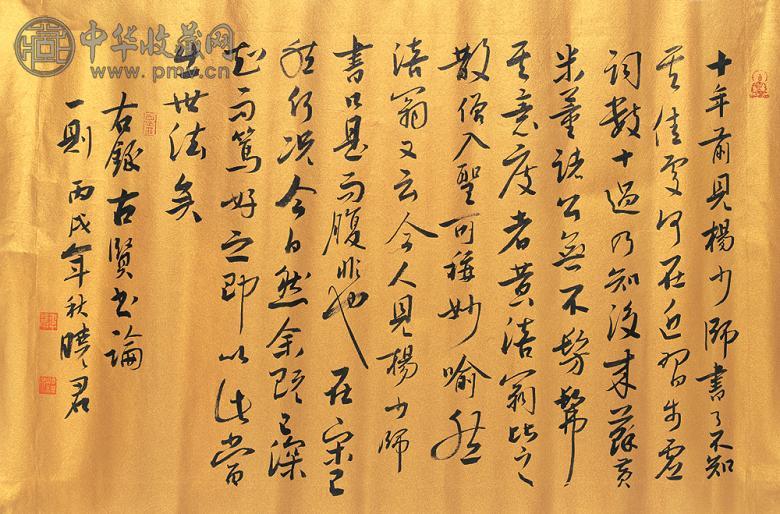 十年前見楊少師書了不知
其佳處何在近習步虛
詞數十過乃知後来蘇黃
米董諸公無不髣髴
其意度者黃涪翁比之
散僧入聖可稱妙喻然
涪翁又云今人見楊少師
書口是而腹非也在宋已
然何況今日然余既已深
知而篤好之即以此當
出世法矣
右錄古賢書論
一則丙戌年秋曉君
中华收藏网